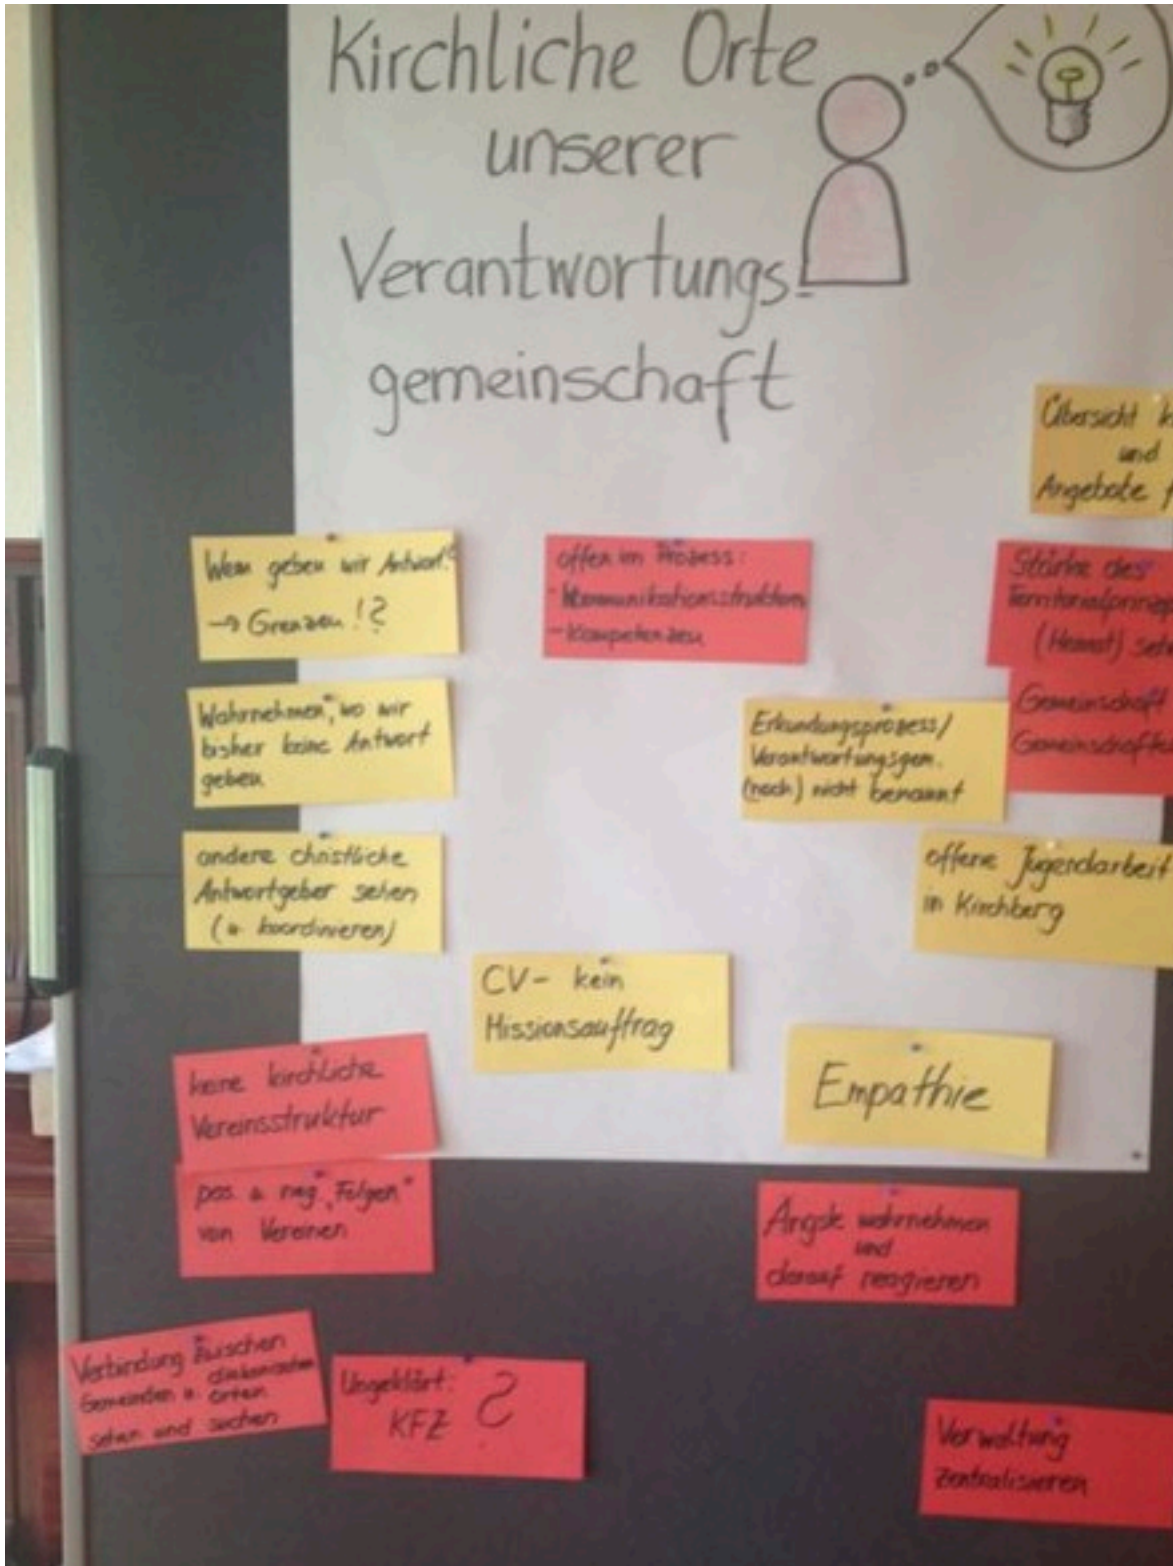 Kirchliche Orte
unserer
Verantwortungs-
gemeinschaft
Übersicht k
und
Angebote f
Wem geben wir Antwort?
→ Grenzen!?
offen im Prozess:
- Kommunikationsstruktur
- Kompetenzen
Stärke des
Territorialprinzip
(Heimat) sehe
Wahrnehmen, wo wir
bisher keine Antwort
geben
Erkundungsprozess/
Verantwortungsgem.
(noch) nicht benannt
Gemeinschaft
Gemeinschafte
andere christliche
Antwortgeber sehen
(u. koordinieren)
offene Jugendarbeit
in Kirchberg
CV- kein
Missionsauftrag
Empathie
keine kirchliche
Vereinsstruktur
pos. u. neg. „Folgen"
von Vereinen
Ängste wahrnehmen
und
darauf reagieren
Verbindung zwischen
Gemeinden u. diakonischen
Orten
sehen und suchen
Ungeklärt:
KFZ ?
Verwaltung
zentralisieren